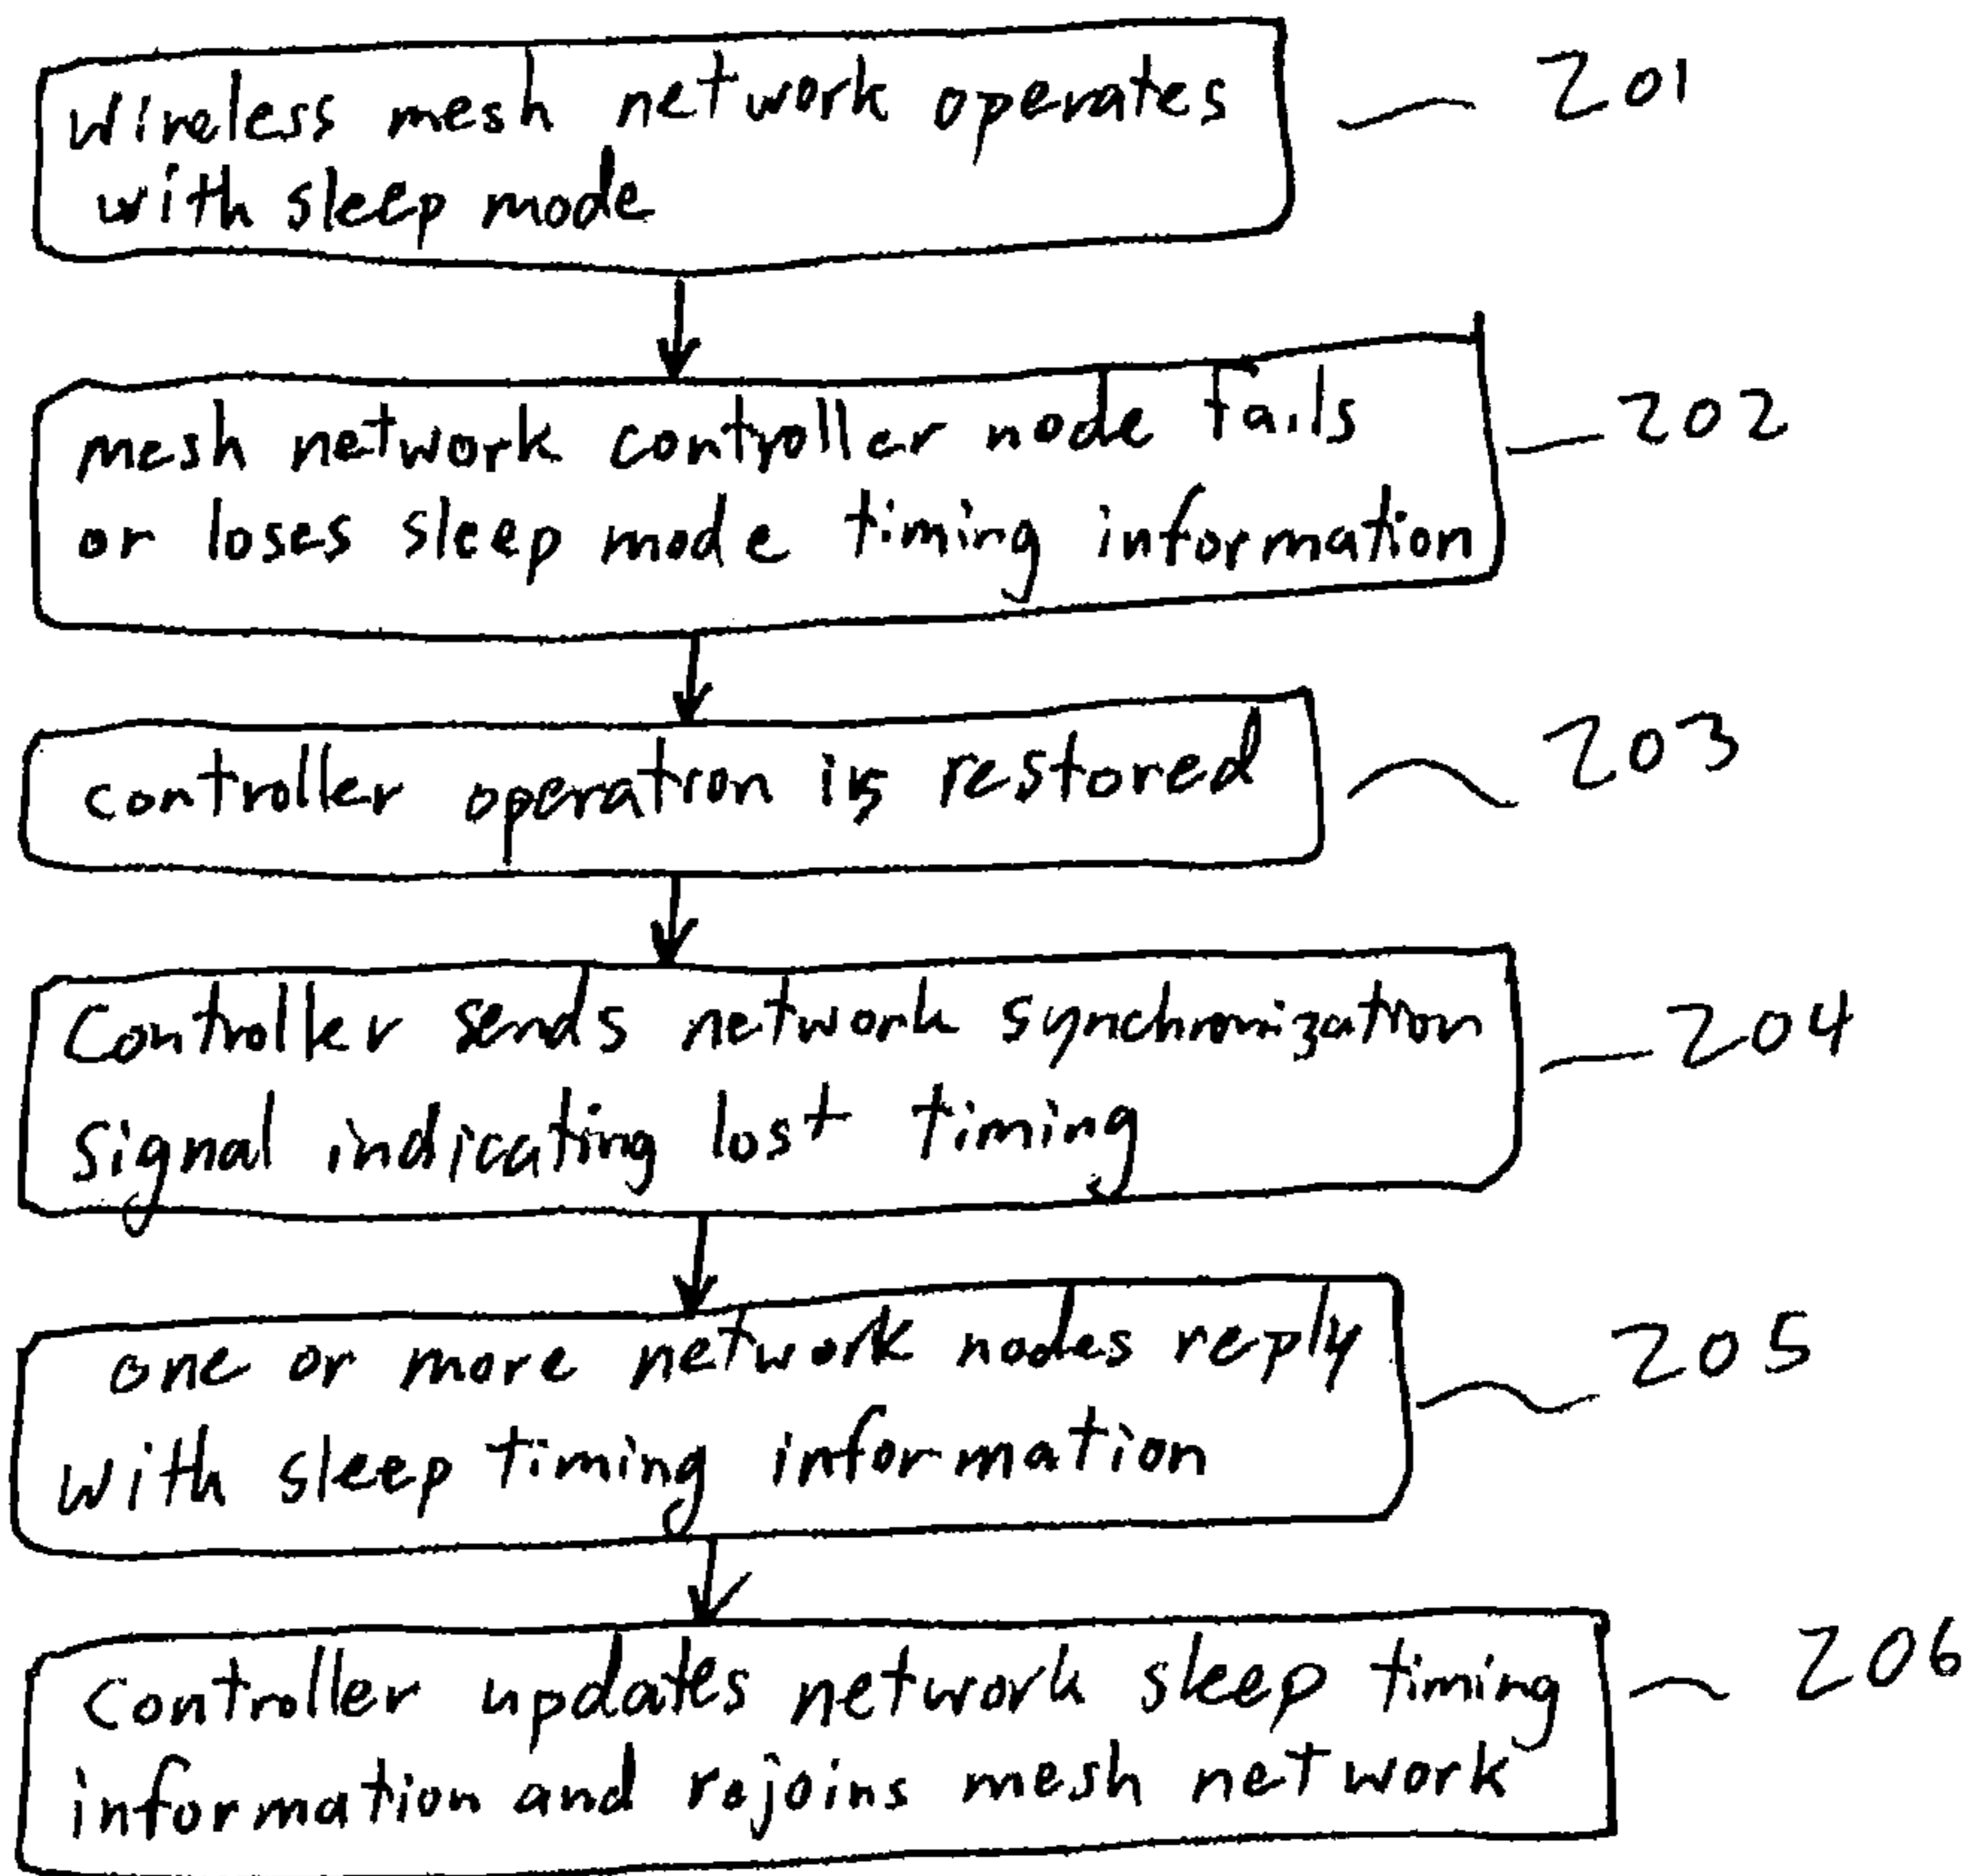 Wireless mesh network operates 201
with sleep mode
mesh network controller node fails 202
or loses sleep mode timing information
controller operation is restored 203
Controller sends network synchronization 204
signal indicating lost timing
one or more network nodes reply 205
with sleep timing information
Controller updates network sleep timing 206
information and rejoins mesh network